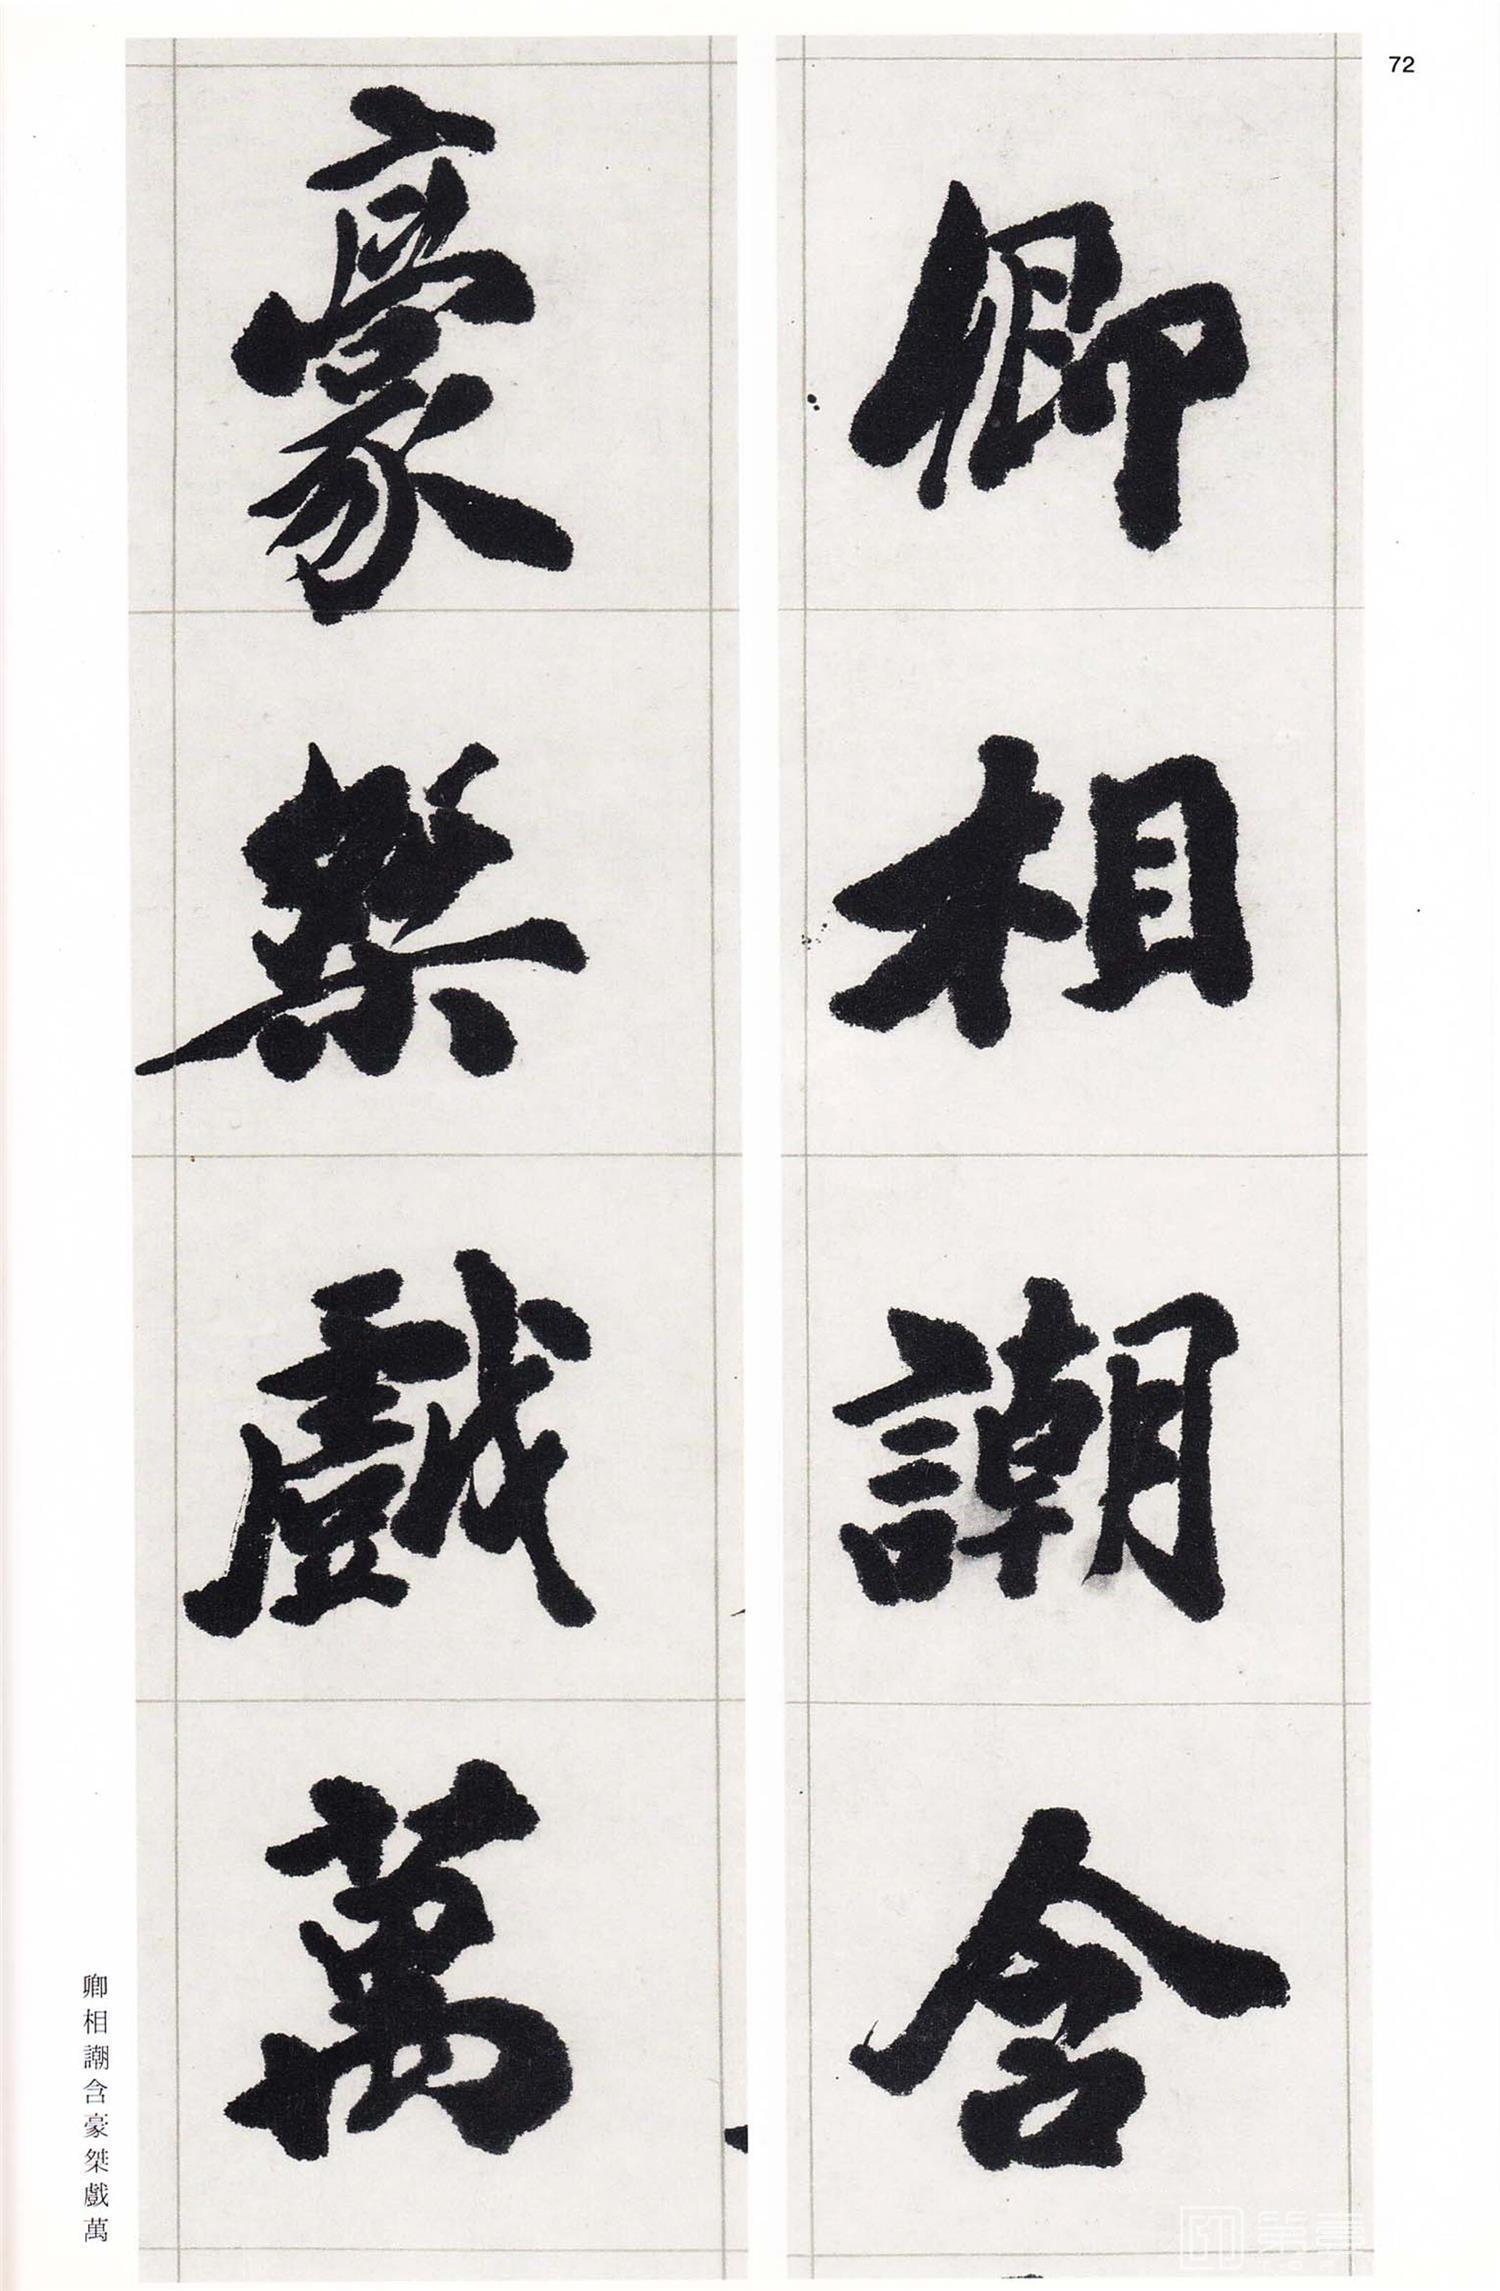 72
卿相謿含
豪桀戲萬
卿相謿含豪桀戲萬